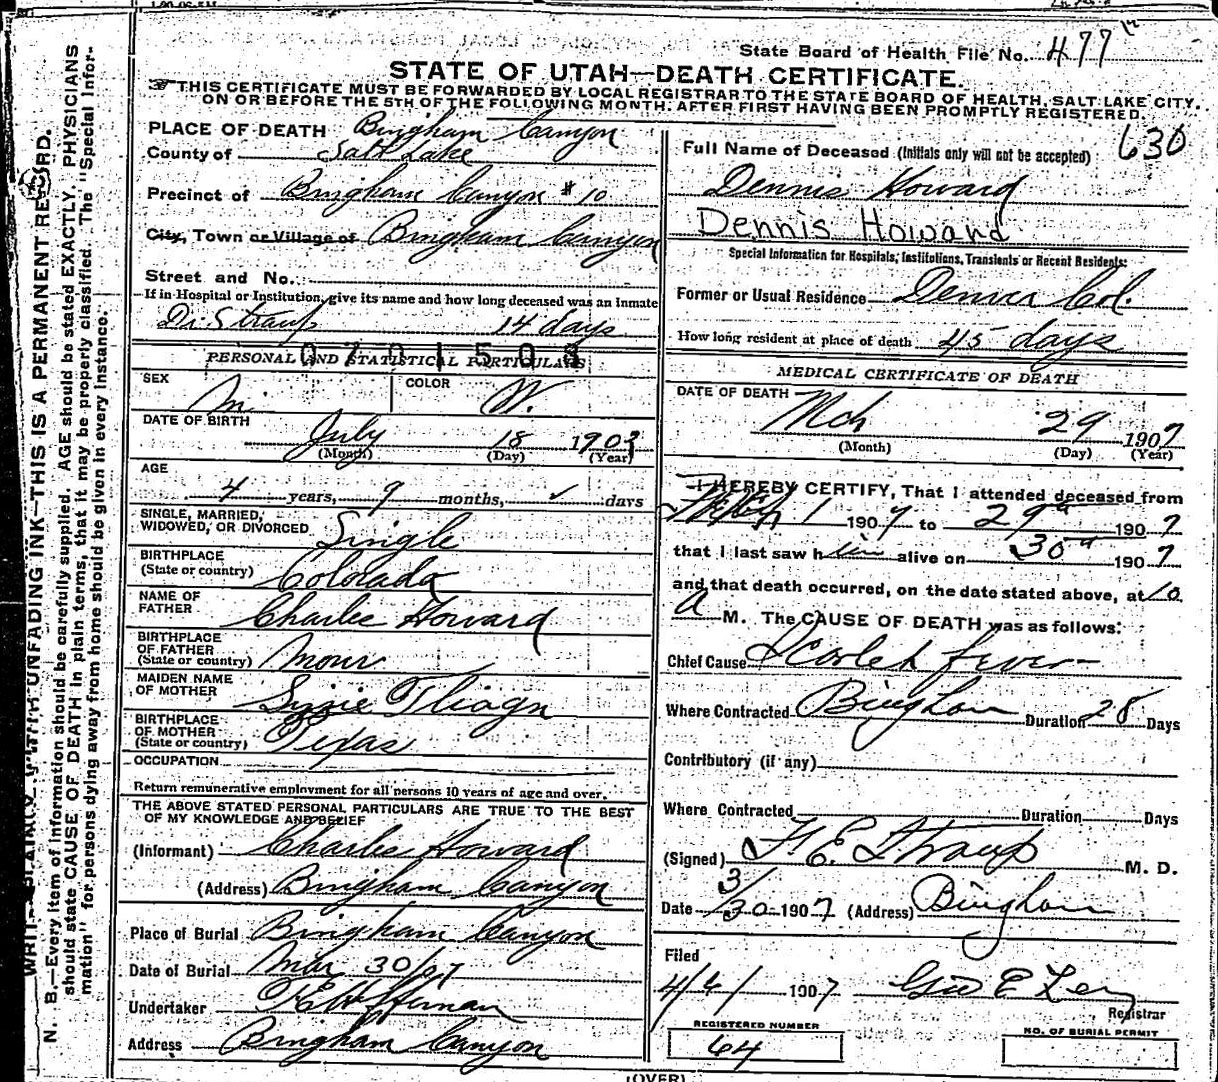 State Board of Health File No. 477
STATE OF UTAH—DEATH CERTIFICATE.
THIS CERTIFICATE MUST BE FORWARDED BY LOCAL REGISTRAR TO THE STATE BOARD OF HEALTH, SALT LAKE CITY,
ON OR BEFORE THE 5TH OF THE FOLLOWING MONTH. AFTER FIRST HAVING BEEN PROMPTLY REGISTERED.
PLACE OF DEATH Bingham Canyon
County of Salt Lake
Precinct of Bingham Canyon # 10
City, Town or Village of Bingham Canyon
Street and No.
If in Hospital or Institution, give its name and how long deceased was an Inmate
Dr. Straup 14 days
0701503
PERSONAL AND STATISTICAL PARTICULARS
SEX M. COLOR W.
DATE OF BIRTH July 18 190
(Month) (Day) (Year)
AGE
4 years, 9 months, ✓ days
SINGLE, MARRIED,
WIDOWED, OR DIVORCED Single
BIRTHPLACE
(State or country) Colorado
NAME OF
FATHER Charles Howard
BIRTHPLACE
OF FATHER
(State or country)
MAIDEN NAME
OF MOTHER
BIRTHPLACE
OF MOTHER
(State or country) Texas
OCCUPATION
Return remunerative employment for all persons 10 years of age and over.
THE ABOVE STATED PERSONAL PARTICULARS ARE TRUE TO THE BEST
OF MY KNOWLEDGE AND BELIEF
(Informant) Charles Howard
(Address) Bingham Canyon
Place of Burial Bingham Canyon
Date of Burial Mar 30/07
Undertaker
Address Bingham Canyon
630
Full Name of Deceased (Initials only will not be accepted)
Dennis Howard
Dennis Howard
Special Information for Hospitals, Institutions, Transients or Recent Residents:
Former or Usual Residence Denver Col.
How long resident at place of death 45 days
MEDICAL CERTIFICATE OF DEATH
DATE OF DEATH
Mch 29 1907
(Month) (Day) (Year)
I HEREBY CERTIFY, That I attended deceased from
1 1907 to 29th 1907
that I last saw him alive on 30th 1907
and that death occurred, on the date stated above, at 10
a M. The CAUSE OF DEATH was as follows:
Chief Cause Scarlet fever
Where Contracted Bingham Duration 28 Days
Contributory (if any)
Where Contracted Duration Days
(Signed) F. E. Straup M. D.
Date 3/30 1907 (Address) Bingham
Filed
4/4/ 1907 Geo E
Registrar
REGISTERED NUMBER
64
NO. OF BURIAL PERMIT
(OVER)
WRITE PLAINLY WITH UNFADING INK—THIS IS A PERMANENT RECORD.
N. B.—Every item of information should be carefully supplied. AGE should be stated EXACTLY. PHYSICIANS
should state CAUSE OF DEATH in plain terms, that it may be properly classified. The "Special Infor-
mation" for persons dying away from home should be given in every instance.